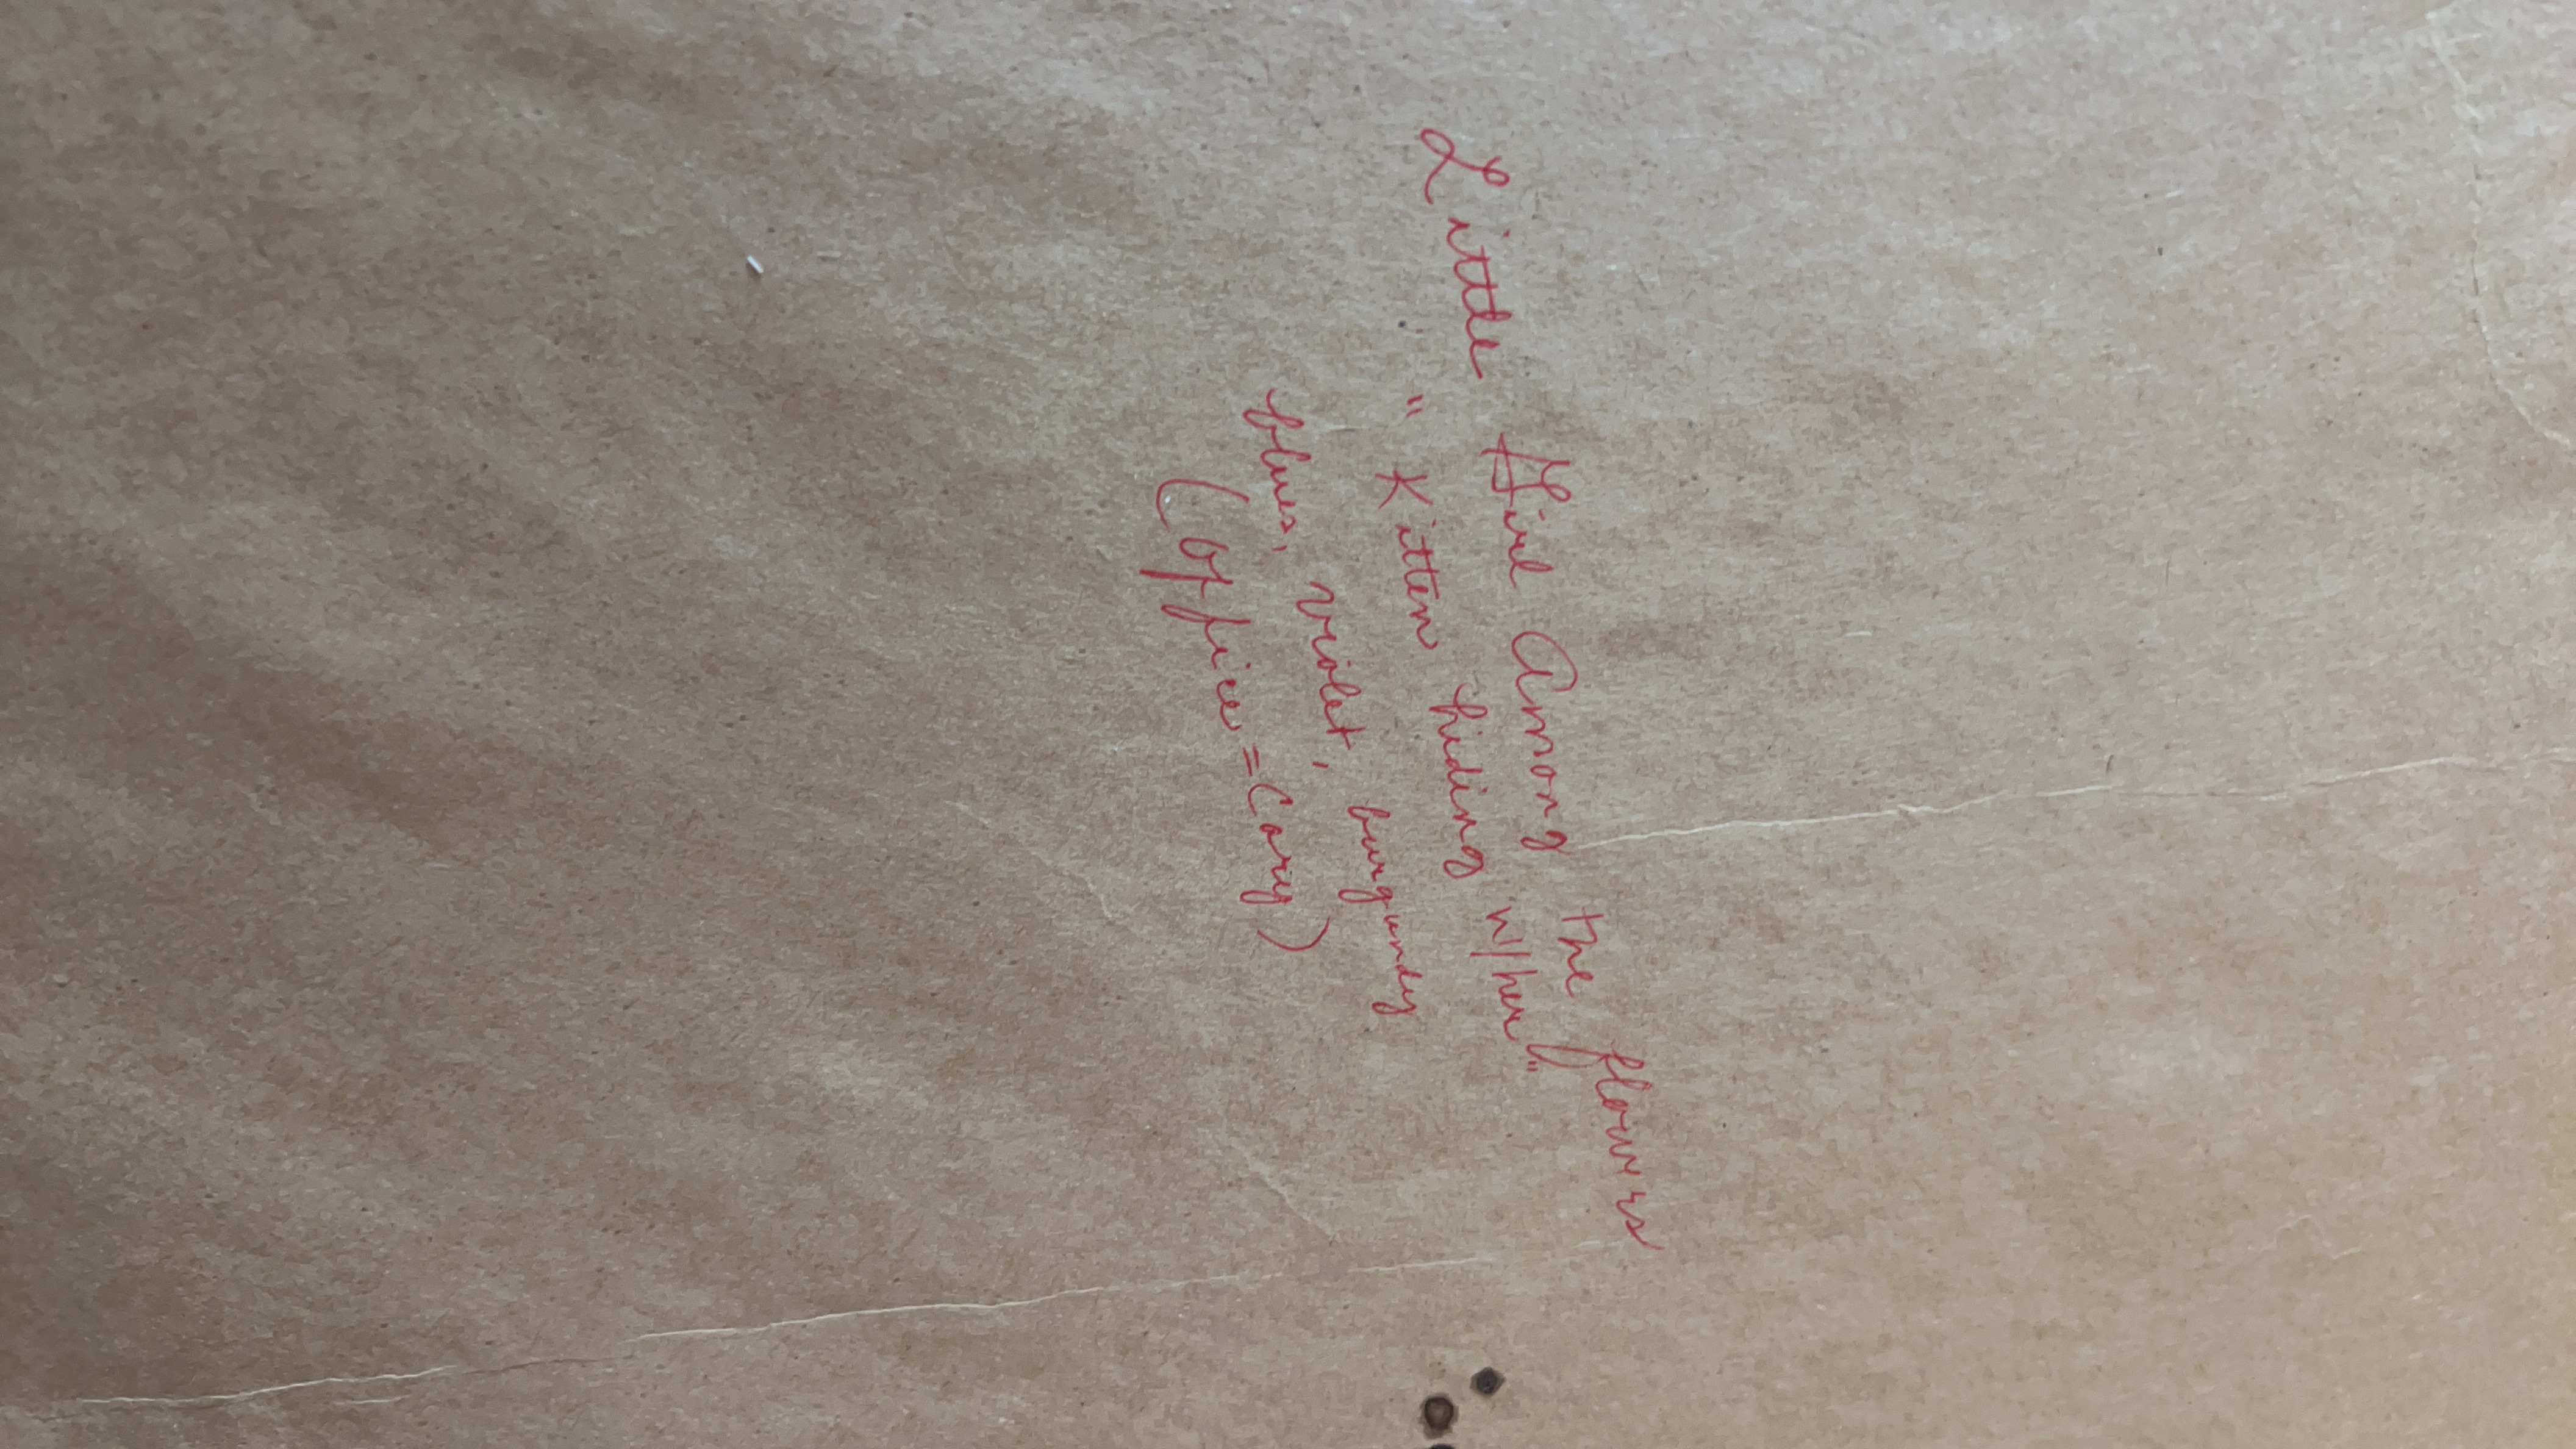 Little Girl Among the flowers
" Kitten hiding w/her"
blues, violet, burgundy
(Office = Cory)